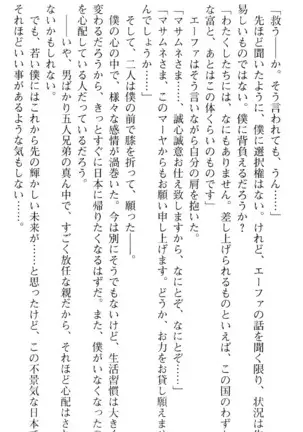 「救う――か。そう言われても、うん……」
先ほど聞いたように、僕に選択権はない。けれど、エーファの話を聞く限り、状況は生
易しいものではない。僕に背負えるだろうか。
「わたくしたちには、なにもありません。差し上げられるものといえば、この国のわずか
な富と、あとはこの体くらいのものです」
エーファはそう言いながら自分の肩を抱いた。
「マサムネさま……誠心誠意お仕え致しますから、なにとぞ、なにとぞ……」
「マサムネさま、このマーヤからもお願い申し上げます。どうか、お力をお貸し願えませ
んでしょうか……」
そして、二人は僕の前で膝を折って、願った――。
僕の心の中で、様々な感情が渦巻いた。今は別にそうでもないけど、生活習慣は大きく
変わるだろうから、きっとすぐに日本に帰りたくなるはずだ。また、僕がいなくなったの
を心配している人だっているだろう。
――いや、男ばかり五人兄弟の真ん中で、すごく放任な親だから、それほど心配はされ
ないかもしれない。
でも、若い僕にはこれから先の輝かしい未来が……と思ったけど、この不景気な日本で
それほどいい事があるような気もしない……。